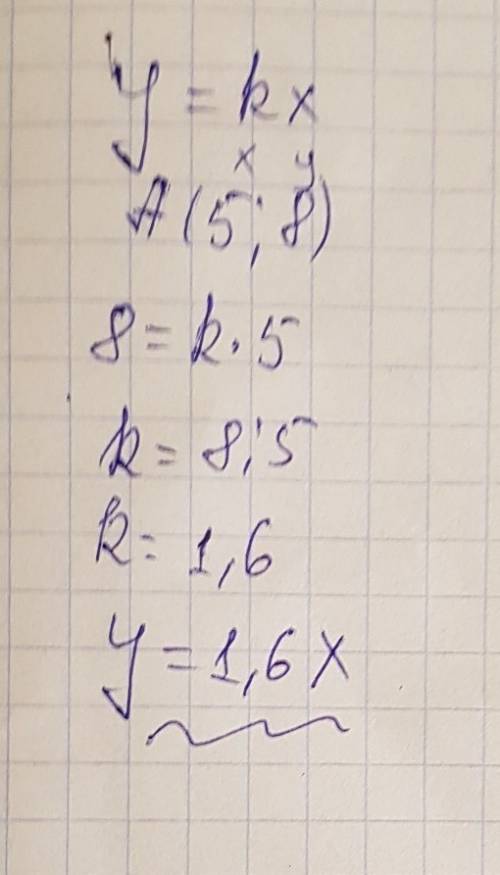 y = kx
x y
A (5; 8)
8 = k · 5
k = 8:5
k = 1,6
y = 1,6 x